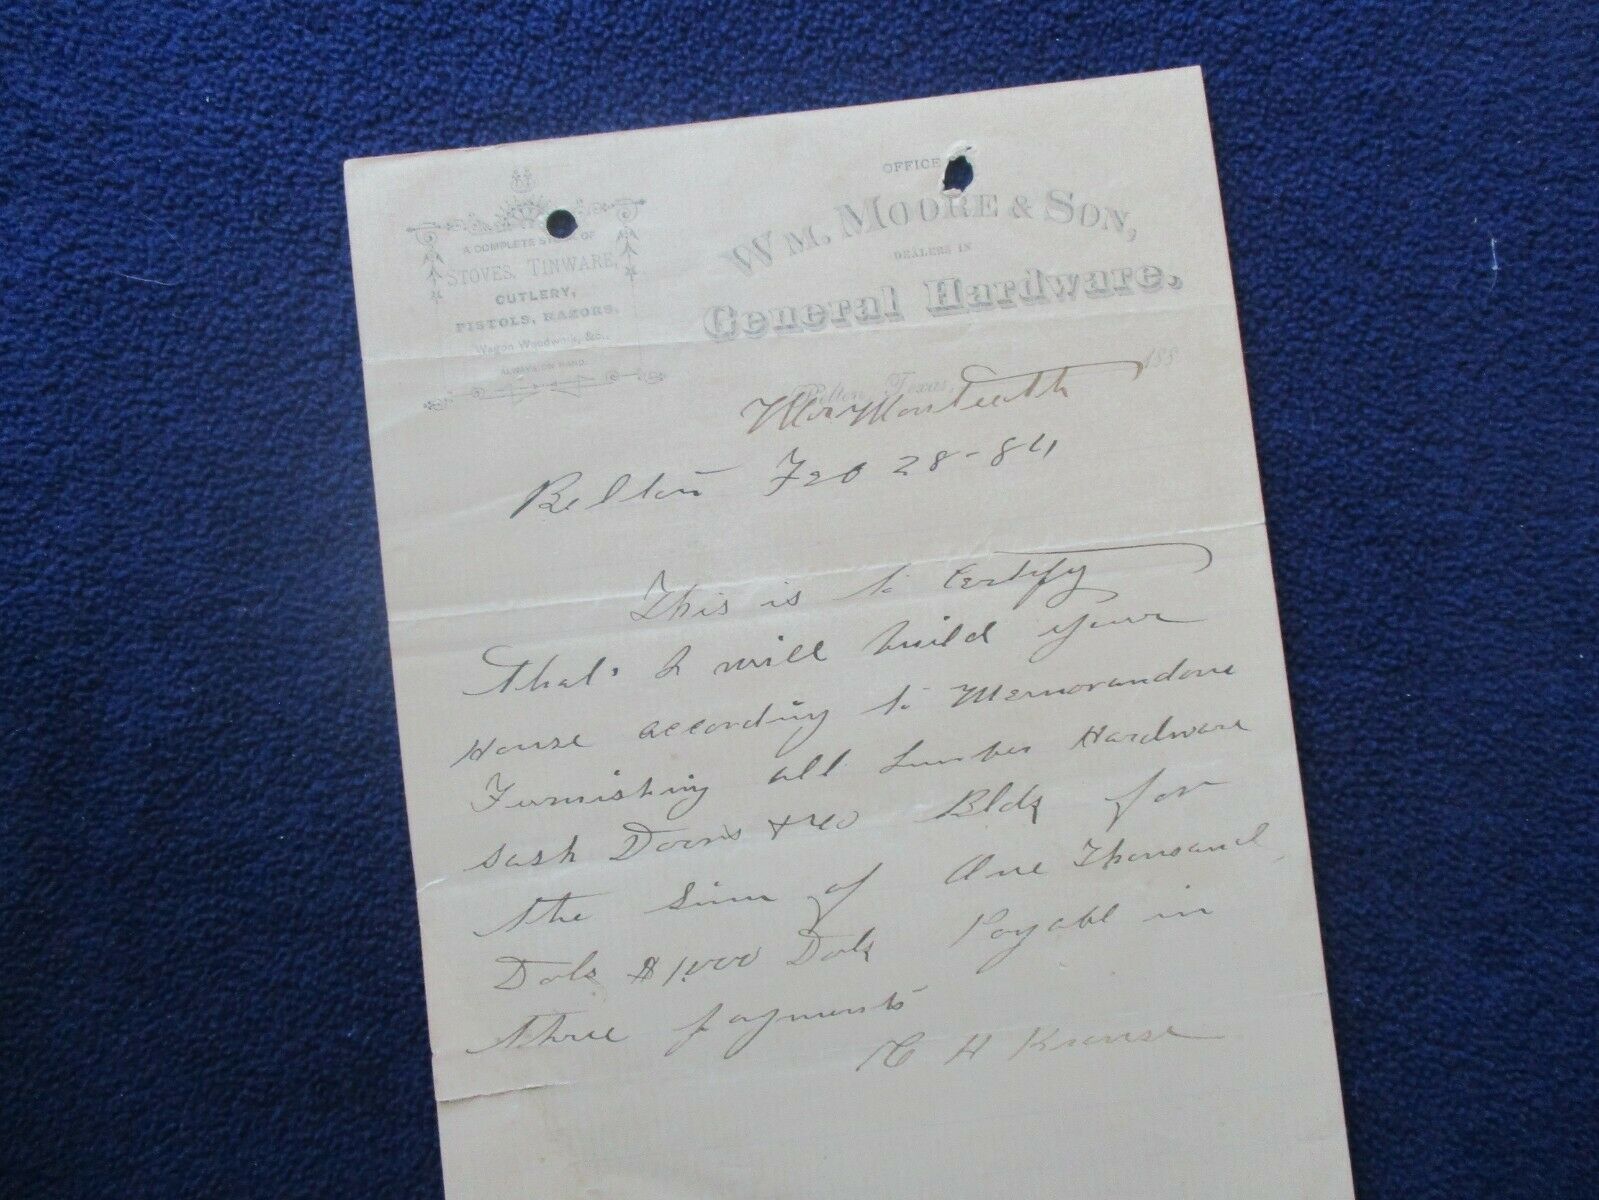 A COMPLETE STOCK OF
STOVES, TINWARE,
CUTLERY,
PISTOLS, RAZORS,
Wagon Woodwork, &c.,
ALWAYS ON HAND.
OFFICE
WM. MOORE & SON,
DEALERS IN
General Hardware.
Belton, Texas, 188
Monteith
Belton Feb 28-84
This is to Certify
that I will build your
House according to Memorandom
Furnishing all Lumber Hardware
Sash Doors & Blds for
the Sum of One Thousand
Dols $1,000 Dols Payabl in
three payments
C H Krause